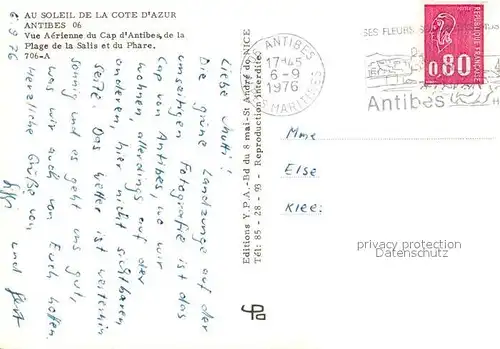 AU SOLEIL DE LA COTE D'AZUR
ANTIBES 06
Vue Aérienne du Cap d'Antibes, de la
Plage de la Salis et du Phare.
706-A
6.9.76
Liebe Mutti!
Die grüne Landzunge auf der
umseitigen Fotografie ist das
Cap von Antibes, wo wir
wohnen, allerdings auf der
anderen, hier nicht sichtbaren
Seite. Das Wetter ist weiterhin
sonnig und es geht uns gut,
was wir auch von Euch hoffen.
Herzliche Grüße von
und
Editions Y.P.A.-Bd du 8 mai-St André de NICE
Tél: 85-28-93 - Reproduction interdite.
ANTIBES
17-45
6-9
1976
MARITIMES
SES FLEURS
Antibes
0,80
Mme
Else
Klee
privacy protection
DS Ansichtskarten.com